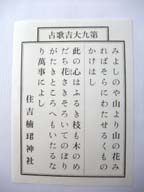 第九大吉歌占
みよしのや山より山の花み
ればそらにわたせるくもの
かけはし
此の心はふるき枝も木のめ
だち花さきそろいてのぼり
がたきところへもいたるな
り萬事によし
住吉楠珺神社